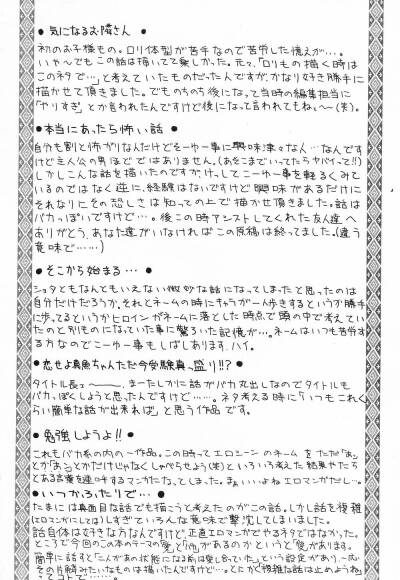 ●気になるお隣さん●
初のお子様もの。ロリ体型が苦手なので苦労した憶えが…。
いゃ〜でもこの話は描いてて楽しかった。元々、「ロリもの描く時は
このネタで…」と考えていたものだったんですが、かなり好き勝手に
描かせて頂きました。でものちのち後になって当時の編集担当に
「やりすぎ」とか言われたんですけど後になって言われてもね〜(笑)。
●本当にあったら怖い話●
自分も割と怖がりなんだけどこーゆー事に興味津々な人…なんです
けど主人公の男ほどではありません。(あそこまでいってたらヤバイって!!)
しかしこんな話を描いたのですが、けっしてこーゆー事を軽るくみて
いるのではなく逆に、経験はないですけど興味があるだけに
それなりにその恐しさは知ってのエで描かせて頂きました。話は
バカっぽいですけど…。後この時アシストしてくれた友人達へ
ありがとう、あなた達がいなければこの原稿は終ってました。(違う
意味で……)
●そこから始まる…●
ショタともなんともいえない微妙な話になってしまったと思ったのは
自分だけだろうか。それとネームの時にキャラが一人歩きするというか勝手
に歩ってるというかヒロインがネームに落とした時点で頭の中で考えてい
たのと別ものになっていた事に驚ろいた記憶が…。ネームはいつも苦労す
る方なのでこーゆー事もしばしあります、ハイ。
●恋せよ真魚ちゃんただ今受験真っ盛り!!?●
タイトル長ェ〜。まーたしかに話がバカ丸出しなのでタイトルも
バカっぽくしようと思ったんですけど……。ネタ考える時に「いつもこれく
らい簡単な話が出来れば」と思う作品です。
●勉強しようよ!!●
これもバカ系の内の一作品。この時ってエロシーンのネームをただ「あッ」
とか「あン」とかだけじゃなくしゃべらせよう(笑)といろいろ考えた結果やたら
とある言葉を連呼するマンガになってしまった。まぁいいよねエロマンガだし…。
●いつかふたりで…●
たまには真面目な話でも描こうと考えたのがこの話。しかし話を複雑
(エロマンガにしては)しすぎていろんな意味で撃沈してしまいました。
話自体は好きな方なんですけど、正直エロマンガでやるネタではなかった。